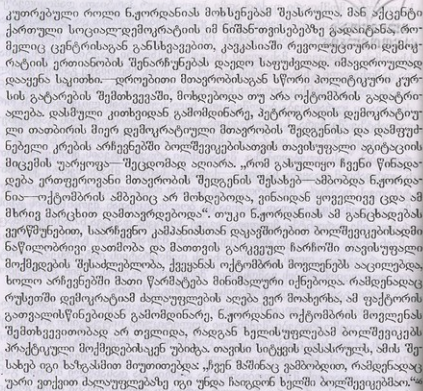 კუთრებული როლი ნ.ჟორდანიას მოხსენებამ შეასრულა. მან აქცენტი
ქართული სოციალ-დემოკრატიის იმ ნიშან-თვისებებზე გადაიტანა, რო-
მელიც ცენტრისაგან განსხვავებით, კავკასიაში რევოლუციური დემოკ-
რატიის ერთიანობის შენარჩუნებას დაედო საფუძვლად. იმავდროულად
დააყენა საკითხი.—დროებითი მთავრობისაგან სწორი პოლიტიკური კურ-
სის გატარების შემთხვევაში, მოხდებოდა თუ არა ოქტომბრის გადატრი-
ალება. დასმული კითხვიდან გამომდინარე, პეტროგრადის დემოკრატიუ-
ლი თათბირის მიერ დემოკრატიული მთავრობის შედგენისა და დამფუძ-
ნებელი კრების არჩევნებში ბოლშევიკებისათვის თავისუფალი აგიტაციის
მიცემის უარყოფა—შეცდომად აღიარა. „რომ გასულიყო ჩვენი წინადა-
დება ერთფეროვანი მთავრობის შედგენის შესახებ—ამბობდა ნ.ჟორდა-
ნია—ოქტომბრის ამბებიც არ მოხდებოდა, ვინაიდან ყოველივე ცდა ამ
მხრივ მარცხით დამთავრდებოდა“. თუკი ნ.ჟორდანიას ამ განცხადებას
ვერწმუნებით, საარჩევნო კამპანიასთან დაკავშირებით ბოლშევიკებისადმი
ნაწილობრივი დათმობა და მათთვის გარკვეულ ჩარჩოში თავისუფალი
მოქმედების შესაძლებლობა, ქვეყანას ოქტომბრის მოვლენებს ააცილებდა,
ხოლო არჩევნებში მათი წარმატება მინიმალური იქნებოდა. რამდენადაც
რუსეთში დემოკრატიამ ძალაუფლების აღება ვერ მოახერხა, ამ ფაქტორის
გათვალისწინებიდან გამომდინარე, ნ.ჟორდანია ოქტომბრის მოვლენას
შემთხვევითობად არ თვლიდა, რადგან ხელისუფლებამ ბოლშევიკებს
პრაქტიკული მოქმედებისაკენ უბიძგა. თავისი სიტყვის დასასრულს, ამის შე-
სახებ იგი ხაზგასმით მიუთითებდა: „ჩვენ მაშინაც ვამბობდით, რამდენადაც
უარი ვთქვით ძალაუფლებაზე იგი უნდა ჩაიგდონ ხელში ბოლშევიკებმა,“